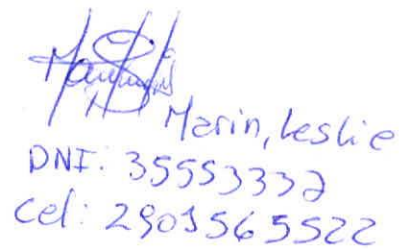 Marin, Leslie
DNI: 35553332
Cel: 2901565522